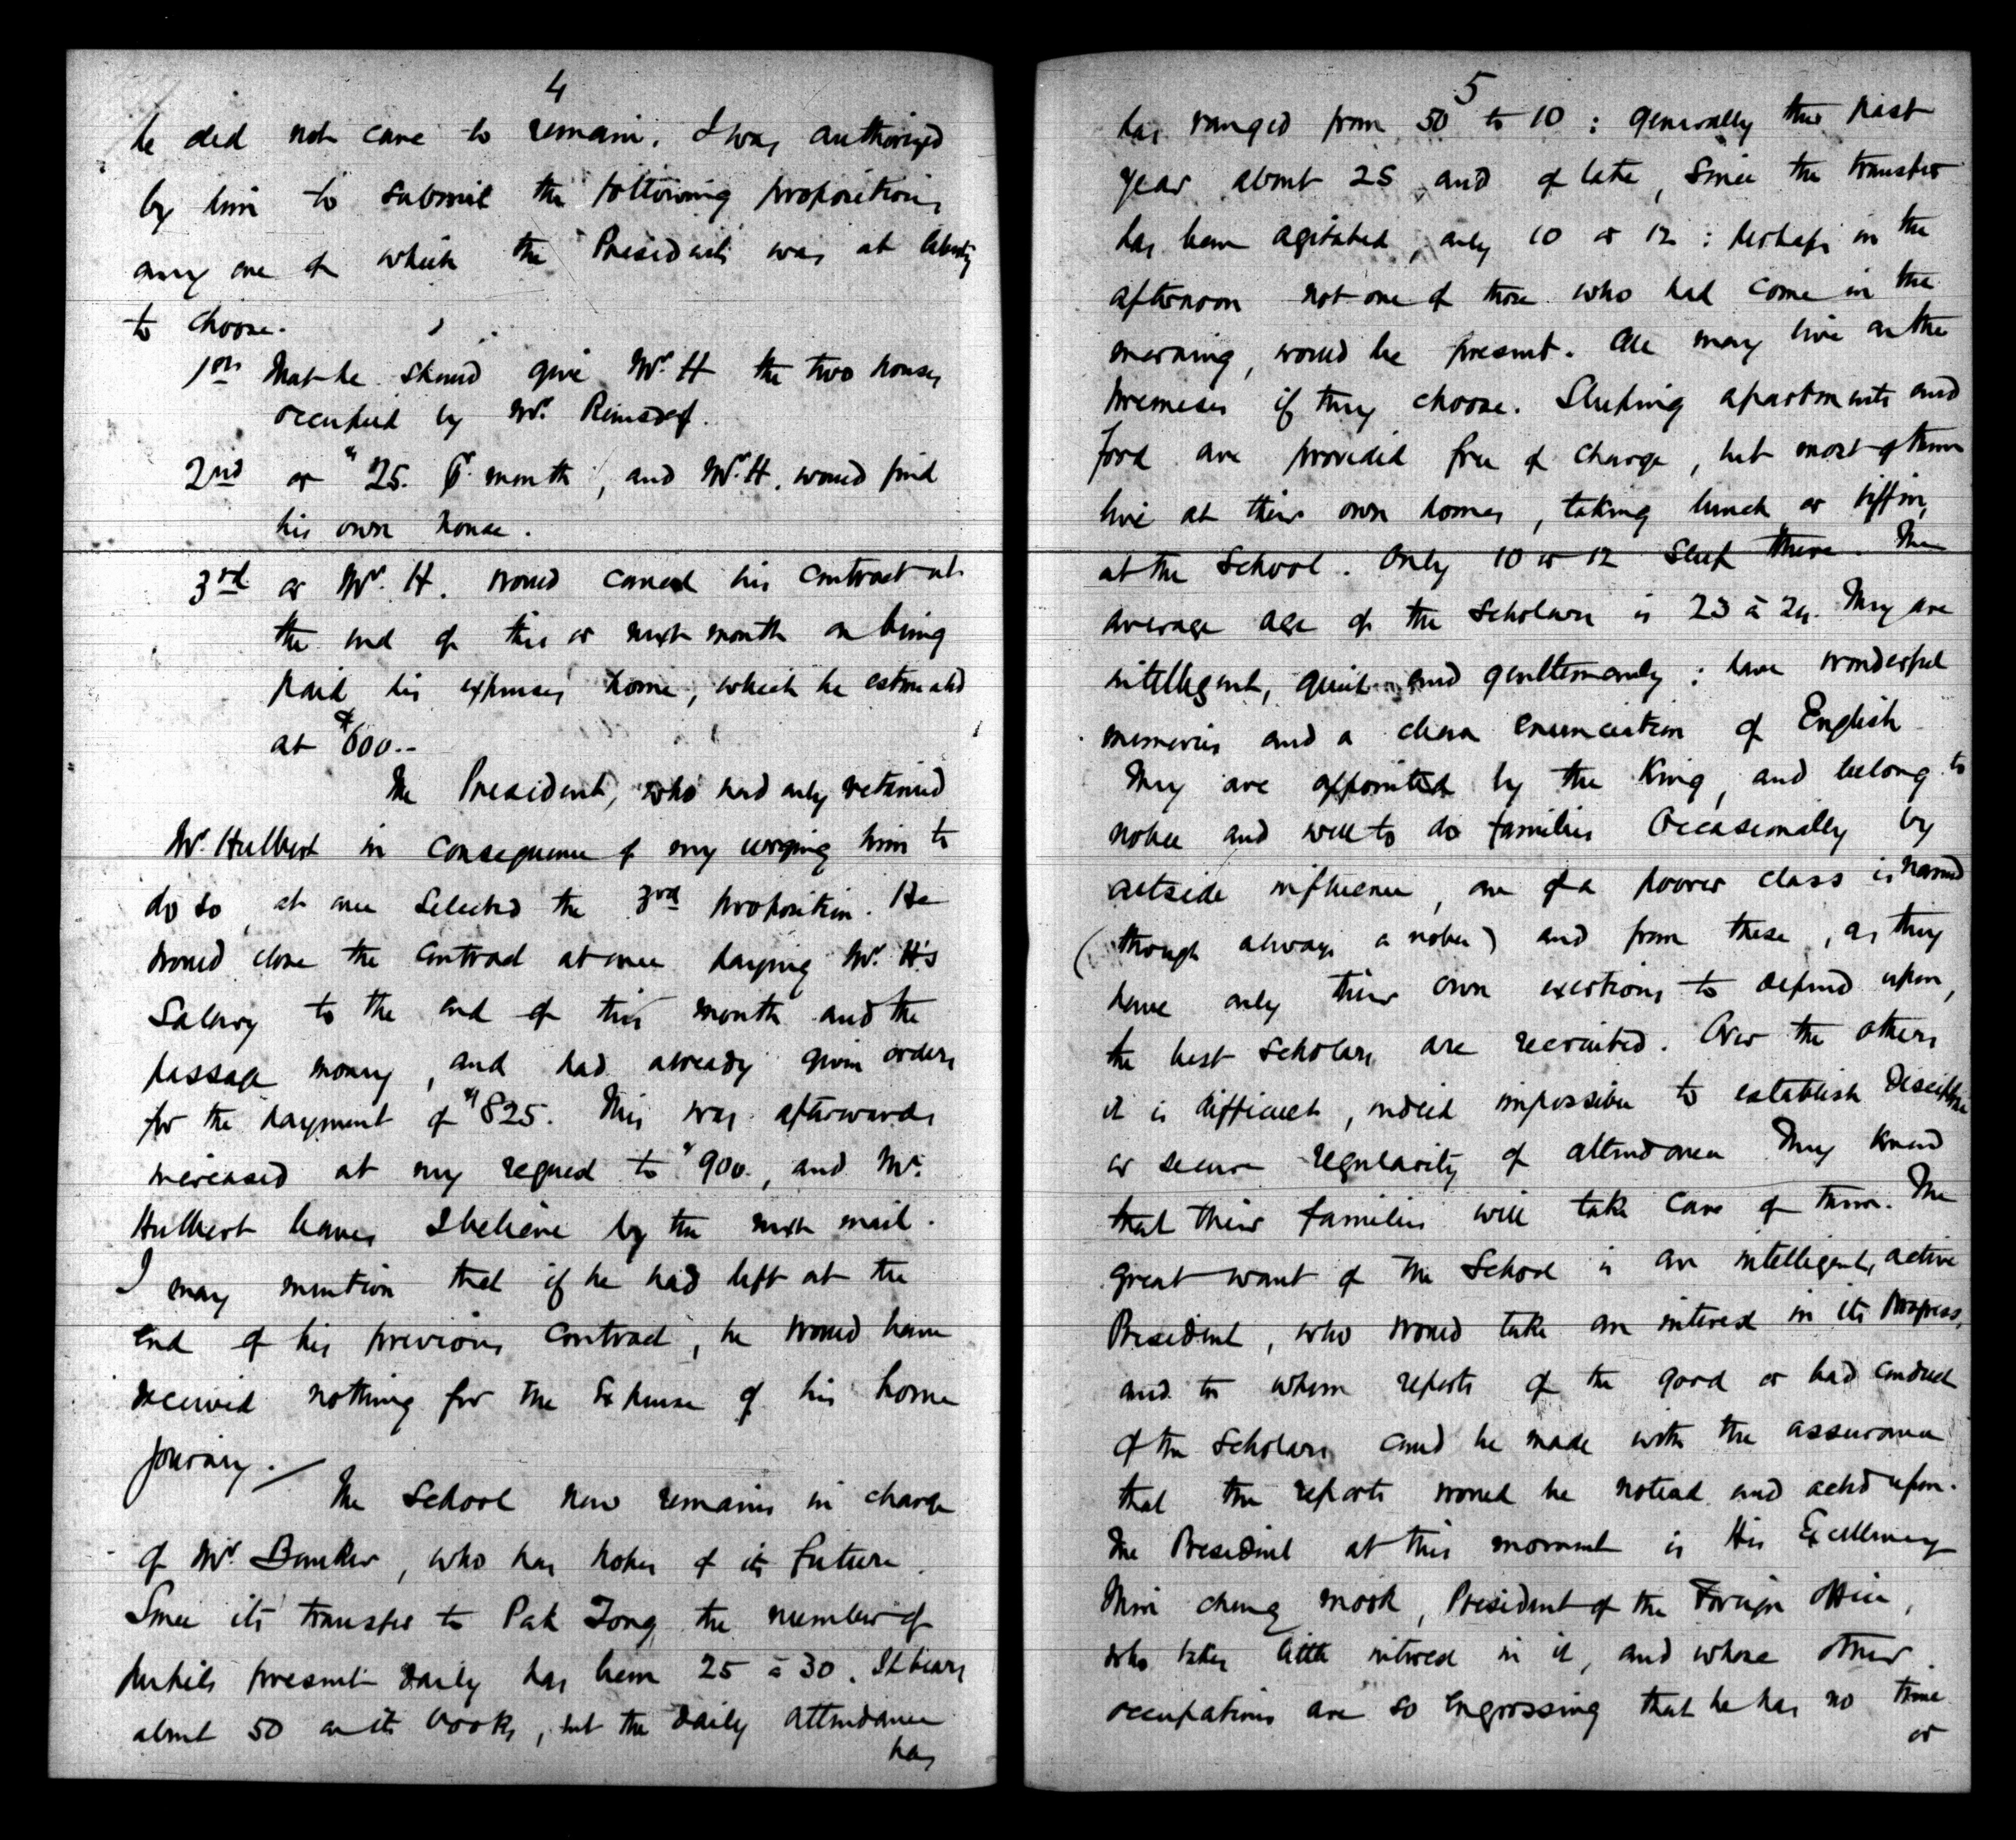 4
he did not care to remain. I was authorized
by him to submit the following propositions
any one of which the President was at liberty
to choose.
1st That he should give Mr. H the two houses
occupied by Mr.
2nd or $25. pr month, and Mr. H. would find
his own house.
3rd or Mr. H. would cancel his contract at
the end of this or next month on being
paid his expenses home, which he estimated
at $600.-
The President, who had only retained
Mr. Hulbert in consequence of my urging him to
do so, at once selected the 3rd proposition. He
would close the contract at once paying Mr. H's
Salary to the end of this month and the
passage money, and had already given orders
for the payment of $825. This was afterwards
increased at my request to $900., and Mr.
Hulbert leaves I believe by the next mail.
I may mention that if he had left at the
end of his previous contract, he would have
received nothing for the Expense of his home
journey.
The School now remains in charge
of Mr. Bunker, who has hopes of its future.
Since its transfer to Pak Tong, the number of
pupils present daily has been 25 à 30. It bears
about 50 on its books, but the daily attendance
has
5
has ranged from 50 to 10: generally this past
year about 25, and of late, since the transfer
has been agitated, only 10 or 12: perhaps in the
afternoon not one of those who had come in the
morning, would be present. All may live on the
premises if they choose. Sleeping apartments and
food are provided free of charge, but most of them
live at their own homes, taking lunch or tiffin,
at the School. Only 10 or 12 sleep there. The
average age of the Scholars is 23 à 24. They are
intelligent, quiet and gentlemanly: have wonderful
memories and a clear enunciation of English
They are appointed by the King, and belong to
noble and well to do families Occasionally by
outside influence, one of a poorer class is named
(though always a noble) and from these, as they
have only their own exertions to depend upon,
the best scholars are recruited. Over the others
it is difficult, indeed impossible to establish discipline
or secure regularity of attendance They know
that their families will take care of them. The
great want of the School is an intelligent, active
President, who would take an interest in its progress,
and to whom reports of the good or bad conduct
of the Scholars could be made with the assurance
that the reports would be noticed and acted upon.
The President at this moment is His Excellency
Min chong mook, President of the Foreign Office,
who takes little interest in it, and whose other
occupations are so engrossing that he has no time
or